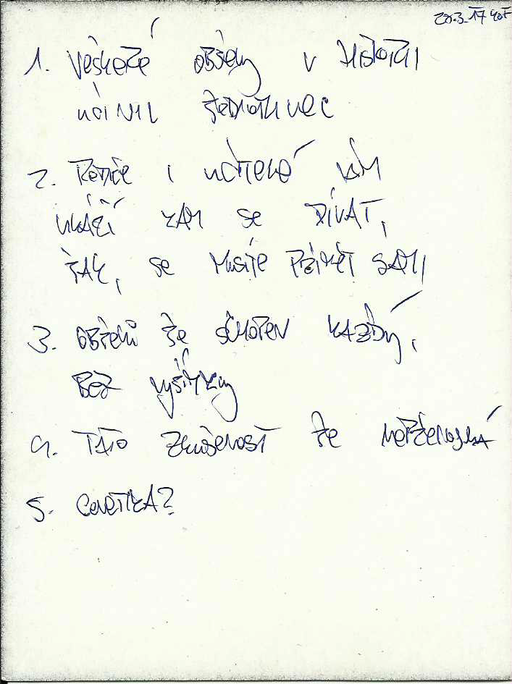 1. Veškeré objevy v historii
učinil jednotlivec
2. Rodiče i učitelé vám
ukáží kam se dívat,
však, se musíte přimět sami
3. Objevů je schopen každý,
bez výjimky
4. Tato zkušenost je nepřenosná
5.